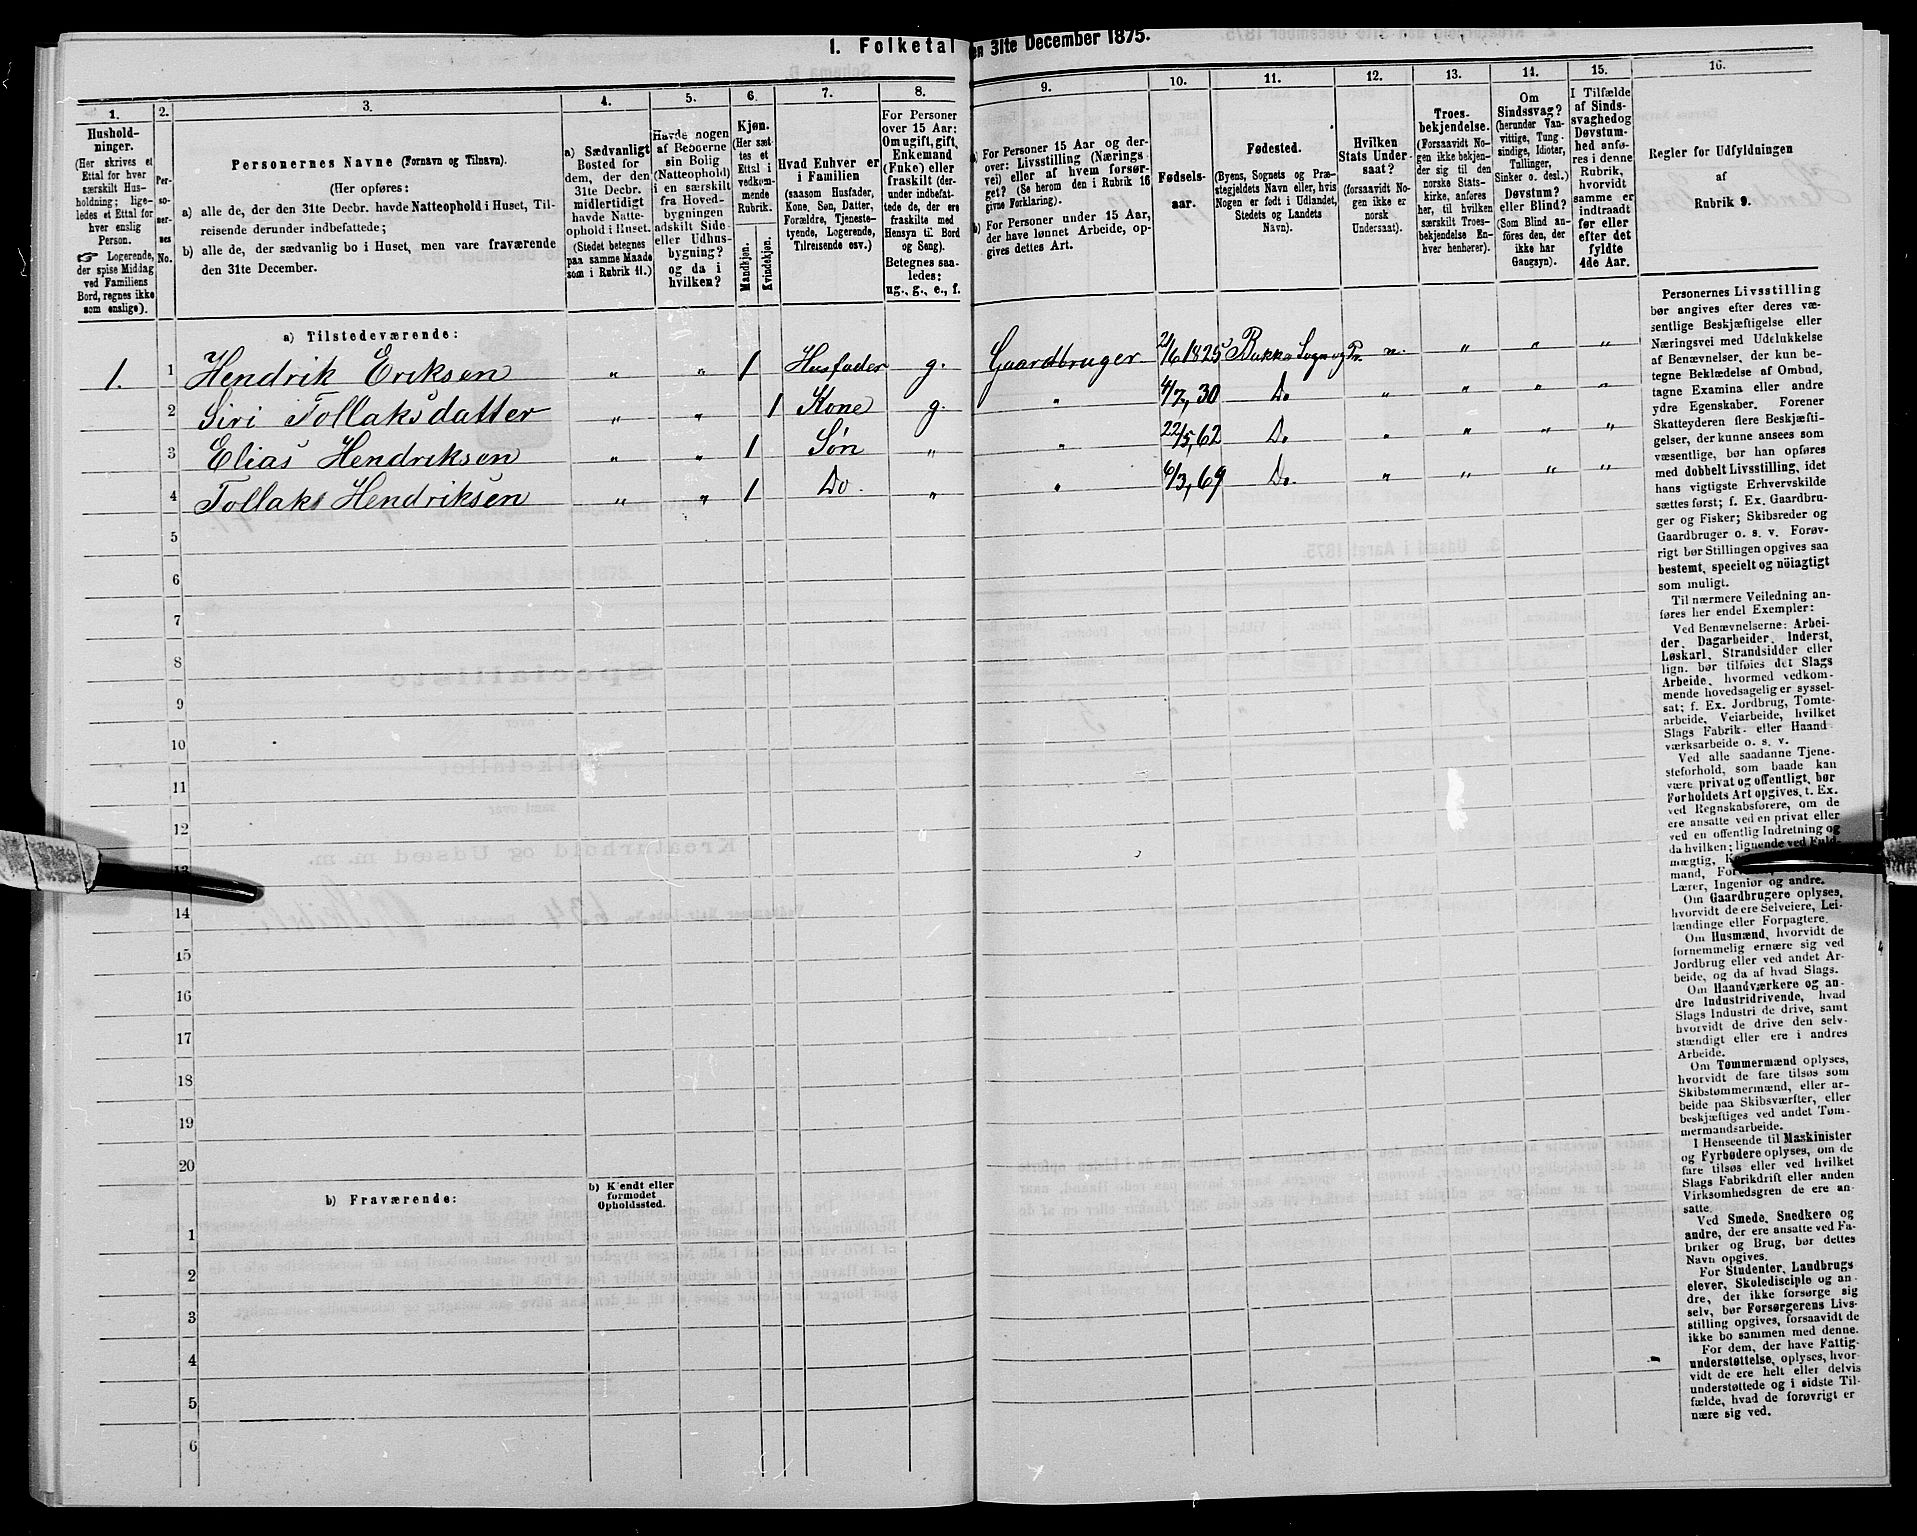 1. Folketal den 31te December 1875.
1.
Hushold-
ninger.
(Her skrives et
Ettal for hver
særskilt Hus-
holdning; lige-
ledes et Ettal for
hver enslig
Person.
☞ Logerende,
der spise Middag
ved Familiens
Bord, regnes ikke
som enslige).
2.
Per-
so-
ner-
nes
No.
3.
Personernes Navne (Fornavn og Tilnavn).
(Her opføres:
a) alle de, der den 31te Decbr. havde Natteophold i Huset, Til-
reisende derunder indbefattede;
b) alle de, der sædvanlig bo i Huset, men vare fraværende
den 31te December.
4.
a) Sædvanligt
Bosted for
dem, der den
31te Decbr.
midlertidigt
havde Natte-
ophold i Huset.
(Stedet betegnes
paa samme Maade
som i Rubrik 11.)
5.
Havde nogen
af Beboerne
sin Bolig
(Natteophold)
i en særskilt
fra Hoved-
bygningen
adskilt Side-
eller Udhus-
bygning?
og da i
hvilken?
6.
Kjøn.
(Her sæt-
tes et
Ettal i
vedkom-
mende
Rubrik.
Mandkjøn.
Kvindekjøn.
7.
Hvad Enhver er
i Familien
(saasom Husfader,
Kone, Søn, Datter,
Forældre, Tjeneste-
tyende, Logerende,
Tilreisende osv.)
8.
For Personer
over 15 Aar:
Om ugift, gift,
Enkemand
(Enke) eller
fraskilt (der-
under indbefat-
tede de, der ere
fraskilte med
Hensyn til Bord
og Seng).
Betegnes saa-
ledes:
ug., g., e., f.
9.
a) For Personer 15 Aar og der-
over: Livsstilling (Nærings
vei) eller af hvem forsør-
get? (Se herom den i Rubrik 16
givne Forklaring).
b) For Personer under 15 Aar,
der have lønnet Arbeide, op-
gives dettes Art.
10.
Fødsels-
aar.
11.
Fødested.
(Byens, Sognets og Præ-
stegjeldets Navn eller, hvis
Nogen er født i Udlandet,
Stedets og Landets
Navn).
12.
Hvilken
Stats Under-
saat?
(forsaavidt No-
gen ikke er
norsk
Undersaat).
13.
Troes-
bekjendelse.
(Forsaavidt No-
gen ikke bekjen-
der sig til den
norske Stats-
kirke, anføres
her, til hvilken
særskilt Troes-
bekjendelse En-
hver henhører).
14.
Om
Sindssvag?
(herunder Van-
vittige, Tung-
sindige, Idioter,
Tullinger,
Sinker o. desl.)
Døvstum?
eller Blind?
(Som Blind an-
føres den, der
ikke har
Gangsyn).
15.
I Tilfælde
af Sinds-
svaghed og
Døvstum-
hed anfø-
res i denne
Rubrik,
hvorvidt
samme er
indtraadt
før eller
efter det
fyldte
4de Aar.
16.
Regler for Udfyldningen
af
Rubrik 9.
a) Tilstedeværende:
1. 1 Hendrik Eriksen " " 1 Husfader g. Gaardbruger 2/6 1825 Bukke Sogn og Pr. n. " " "
2 Siri Tollaksdatter " " 1 Kone g. " 4/7, 30 Do " " " "
3 Elias Hendriksen " " 1 Søn " " 22/5, 62 Do " " " "
4 Tollaks Hendriksen " " 1 Do. " " 6/3, 69 Do. " " " "
5
6
7
8
9
10
11
12
13
14
15
16
17
18
19
20
b) Fraværende:
b) Kjendt eller
formodet
Opholdssted.
1
2
3
4
5
6
Personernes Livsstilling
bør angives efter deres væ-
sentlige Beskjæftigelse eller
Næringsvei med Udelukkelse
af Benævnelser, der kun be-
tegne Beklædelse af Ombud,
tagne Examina eller andre
ydre Egenskaber. Forener
Skatteyderen flere Beskjæfti-
gelser, der kunne ansees som
væsentlige, bør han opføres
med dobbelt Livsstilling, idet
hans vigtigste Erhvervskilde
sættes først; f. Ex. Gaardbru-
ger og Fisker; Skibsreder og
Gaardbruger o. s. v. Forøv-
rigt bør Stillingen opgives saa
bestemt, specielt og nöiagtigt
som muligt.
Til nærmere Veiledning an-
føres her endel Exempler:
Ved Benævnelserne: Arbei-
der, Dagarbeider, Inderst,
Løskarl, Strandsidder eller
lign. bør tilføies det Slags
Arbeide, hvormed vedkom-
mende hovedsagelig er syssel-
sat; f. Ex. Jordbrug, Tomte-
arbeide, Veiarbeide, hvilket
Slags Fabrik- eller Haand
værksarbeide o. s. v.
Ved alle saadanne Tjene-
steforhold, som baade kan
være privat og offentligt, bør
Forholdets Art opgives, t. Ex.
ved Regnskabsførere, om de
ere ansatte ved en privat eller
ved en offentlig Indretning og
da hvilken; lignende ved Fuld-
mægtig,
mand,
Lærer, Ingeniør og andre.
Om Gaardbrugere oplyses,
hvorvidt de ere Selveiere, Lei-
lændinge eller Forpagtere.
Om Husmænd, hvorvidt de
fornemmelig ernære sig ved
Jordbrug eller ved andet Ar-
beide, og da af hvad Slags.
Om Haandværkere og an-
dre Industridrivende, hvad
Slags Industri de drive, samt
hvorvidt de drive den selv-
stændigt eller ere i andres
Arbeide.
Om Tømmermænd oplyses,
hvorvidt de fare tilsøs som
Skibstømmermænd, eller ar-
beide paa Skibsværfter, eller
beskjæftiges ved andet Tøm-
mermandsarbeide.
I Henseende til Maskinister
og Fyrbødere oplyses, om de
fare tilsøs eller ved hvilket
Slags Fabrikdrift eller anden
Virksomhedsgren de ere an-
satte.
Ved Smede, Snedkere og
andre, der ere ansatte ved Fa-
briker og Brug, bør dettes
Navn opgives.
For Studenter, Landbrugs
elever, Skoledisciple og an-
dre, der ikke forsørge sig
selv, bør Forsørgerens Livs-
stilling opgives, forsaavidt de
ikke bo sammen med denne.
For dem, der have Fattig-
understøttelse, oplyses, hvor-
vidt de ere helt eller delvis
understøttede og i sidste Til-
fælde, hvad de forøvrigt er
nære sig ved.